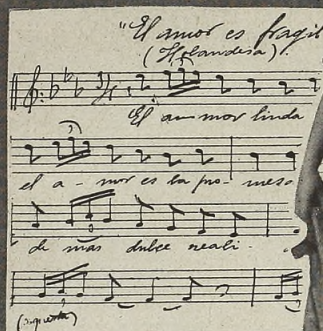 "El amor es fragil
(Holandesa).
El a-mor linda
el a-mor es la pro-mesa
de mas dulce reali-
(orquesta)